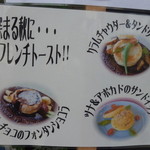 深まる秋に・・・
フレンチトースト!!
クラムチャウダー&タンド
ツナ&アボカドのサンド
チョコのフォンダンショコラ